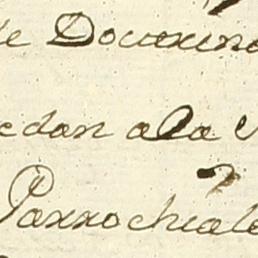 de Doctrina
edan a la
Parrochiale